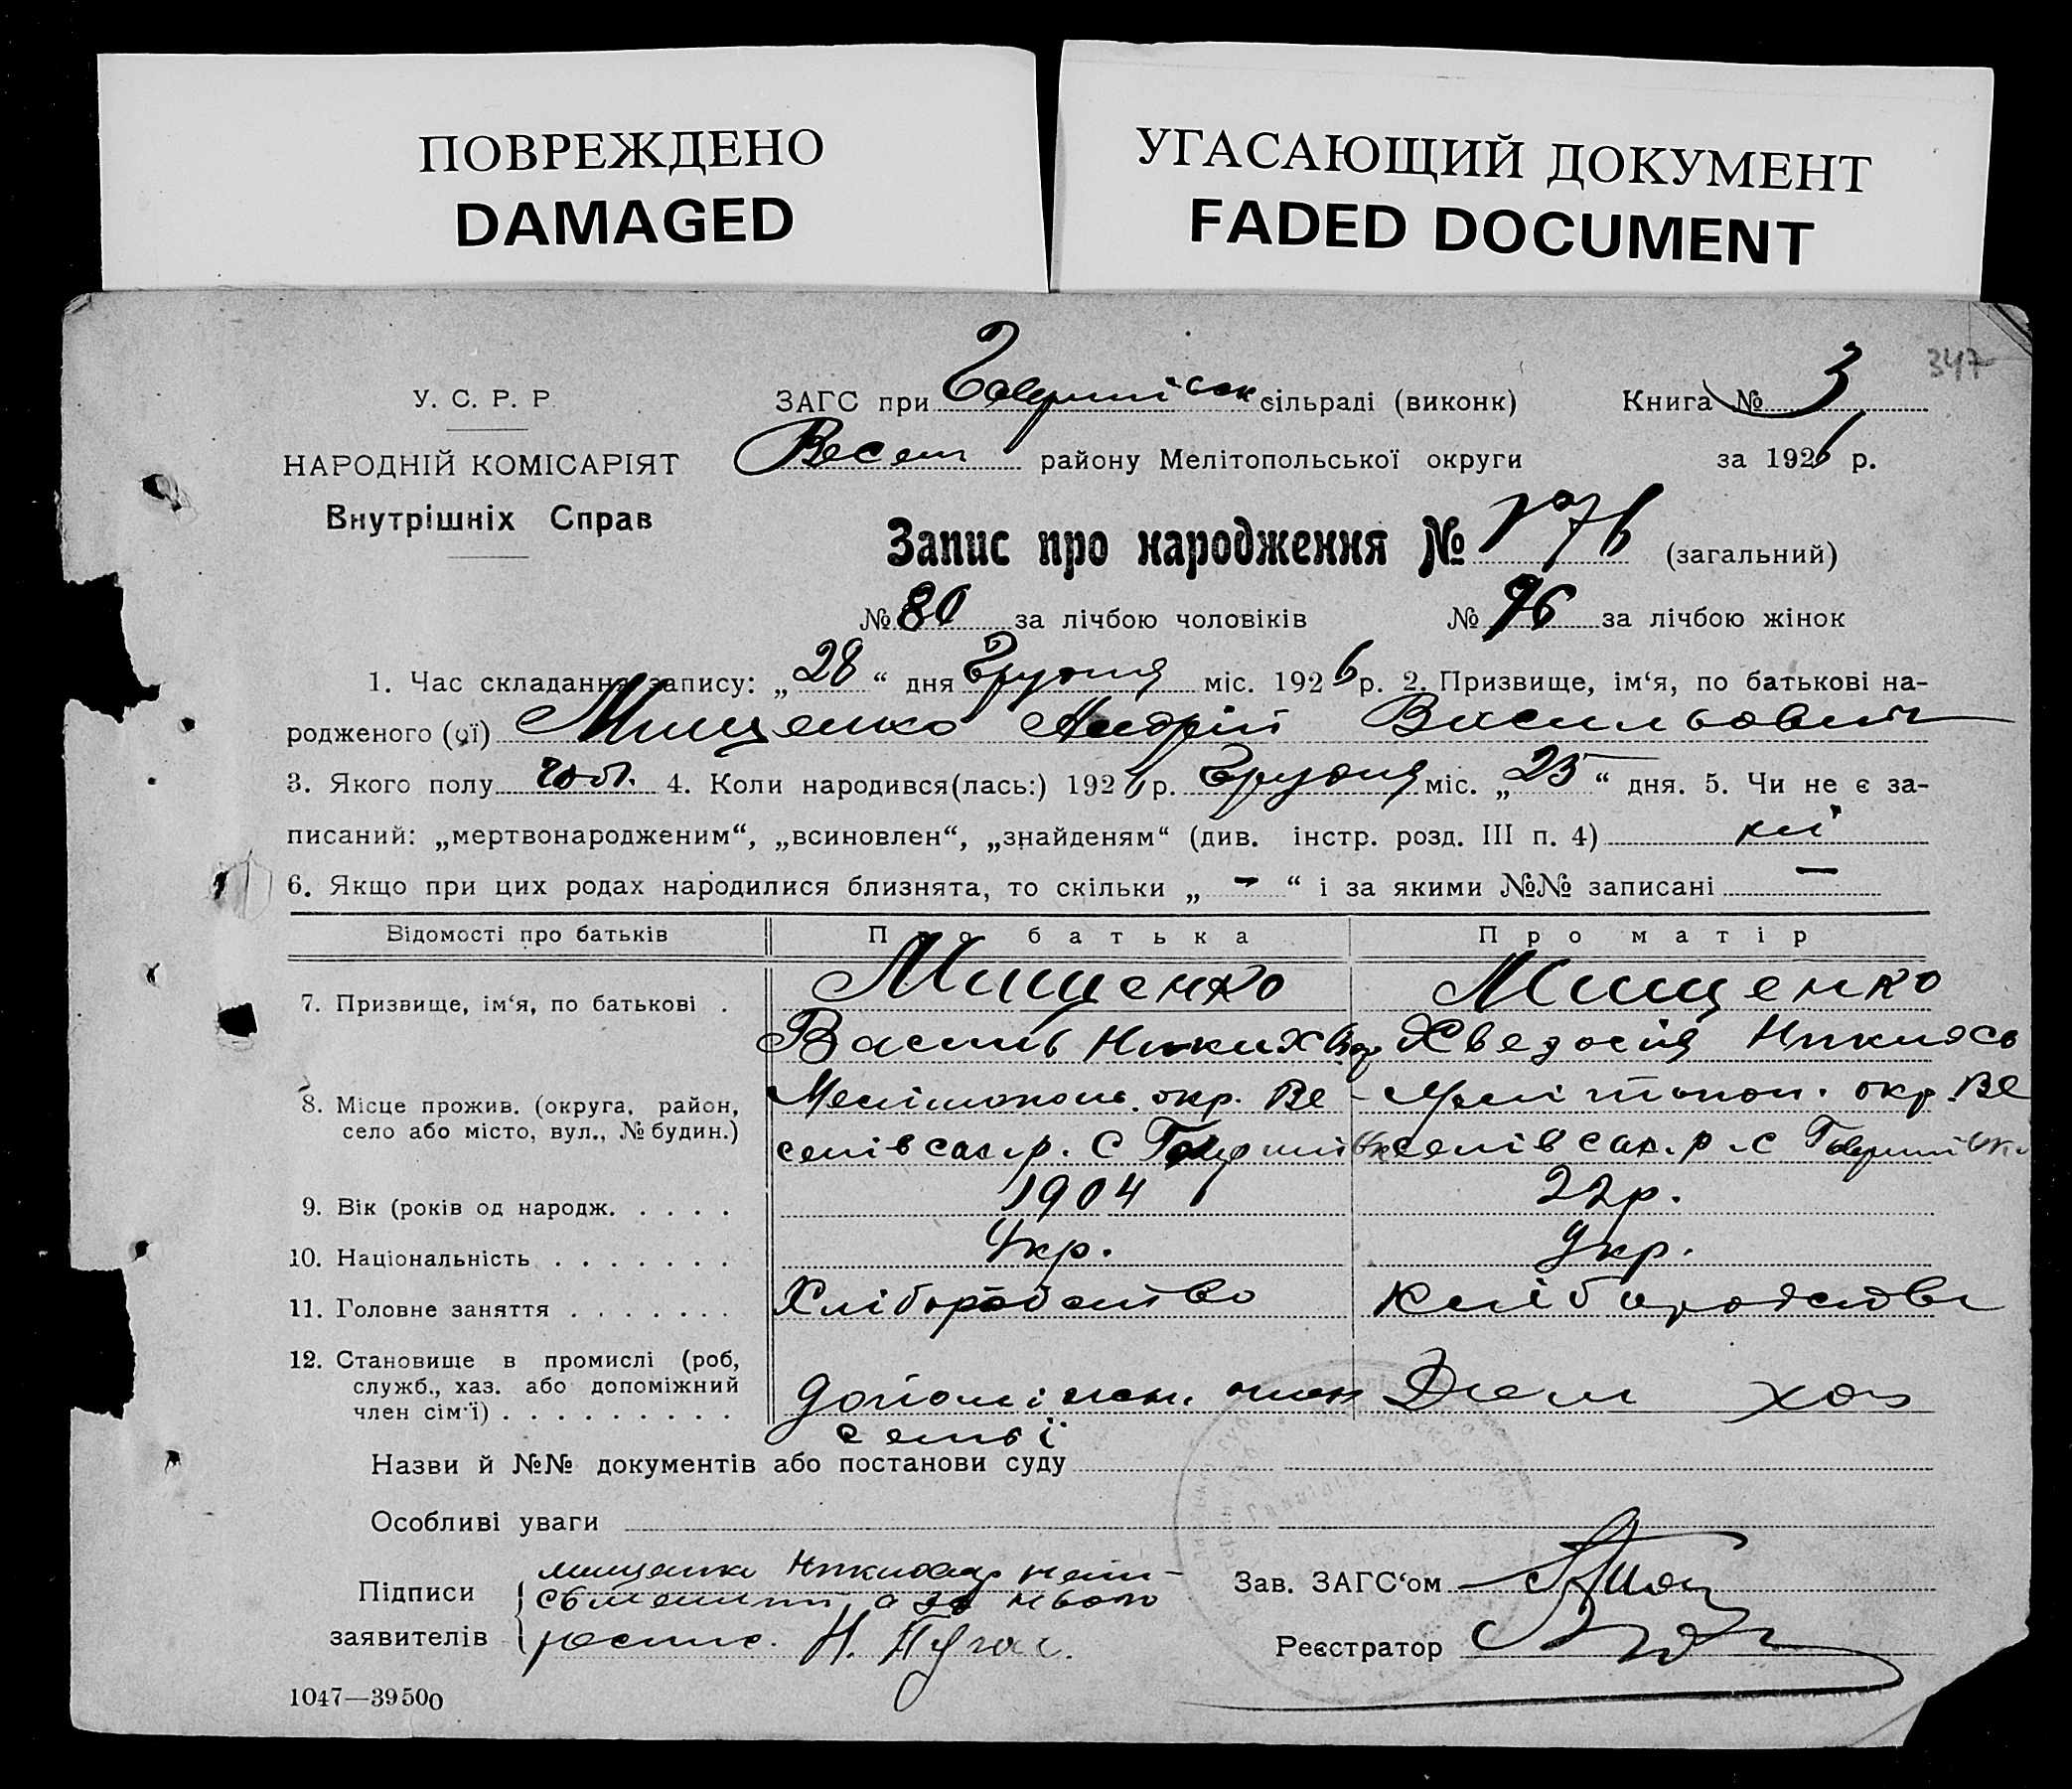 ПОВРЕЖДЕНО
DAMAGED
УГАСАЮЩИЙ ДОКУМЕНТ
FADED DOCUMENT
347
У. С. Р. Р.
НАРОДНІЙ КОМІСАРІЯТ
Внутрішніх Справ
ЗАГС при сільраді (виконк)
Книга № 3
Весел району Мелітопольської округи
за 1926 р.
Запис про народження № 176 (загальний)
№ 80 за лічбою чоловіків № 96 за лічбою жінок
1. Час складання запису: „28“ дня Грудня міс. 1926 р. 2. Призвище, ім‘я, по батькові на-
родженого (ої) Мищенко Андрій Васильович
3. Якого полу чол. 4. Коли народився(лась:) 1926 р. Грудня міс. „25“ дня. 5. Чи не є за-
писаний: „мертвонародженим“, „всиновлен“, „знайденям“ (див. інстр. розд. III п. 4) ні
6. Якщо при цих родах народилися близнята, то скільки „ - “ і за якими №№ записані —
Відомості про батьків Про батька Про матір
7. Призвище, ім‘я, по батькові . Мищенко Мищенко
Василь Никихвор Хведосія
8. Місце прожив. (округа, район, Мелітополь. окр. Ве- Мелітопол. окр. Ве
село або місто, вул., № будин.) селівськ. р. С селівськ. р. с
9. Вік (років од народж. . . . . 1904 22 р.
10. Національність . . . . . . . Укр. Укр.
11. Головне заняття . . . . . . . Хліборобство
12. Становище в промислі (роб,
служб., хаз. або допоміжний допоміжн. член хаз
член сім‘ї) . . . . . . . . . семьї
Назви й №№ документів або постанови суду
Особливі уваги
Підписи
заявителів
Мищенко Никихвор неп-
сьменний а за нього
роспис. Н.
Зав. ЗАГС‘ом
Реєстратор
1047—39500